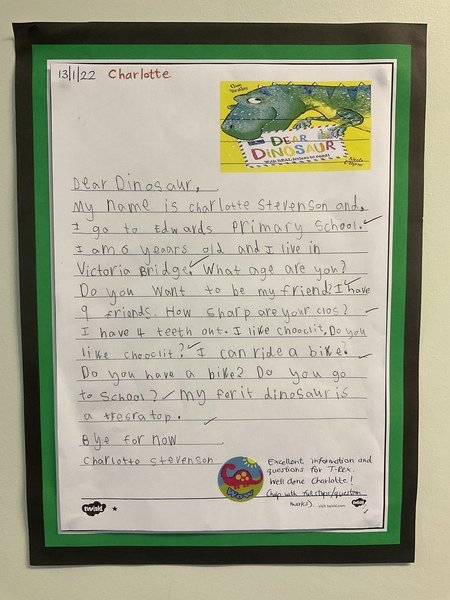 13/1/22 Charlotte
Chae Strathie
DEAR
DINOSAUR
WITH REAL LETTERS TO READ!
Nicola O'Byrne
Dear Dinosaur,
My name is charlotte Stevenson and,
I go to Edwards Primary School.
I am 6 yeaars old and I live in
Victoria Bridge. What age are you?
Do you want to be my friend? I have
9 friends. How sharp are your clos?
I have 4 teeth out. I like chooclit. Do you
like chooclit? I can ride a bike.
Do you have a bike? Do you go
to School? My ferit dinosaur is
a tresratop.
Bye for now
Charlotte Stevenson
Excellent information and
questions for T-Rex.
Well done Charlotte!
(help with full stops/question
marks).
WOW
twinkl
visit twinkl.com
twinkl